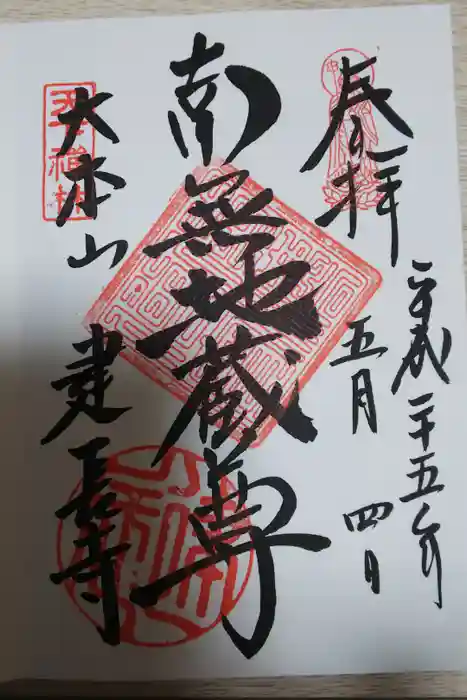 奉拝
平成二十五年
五月
四日
南無地蔵尊
大本山
建長寺